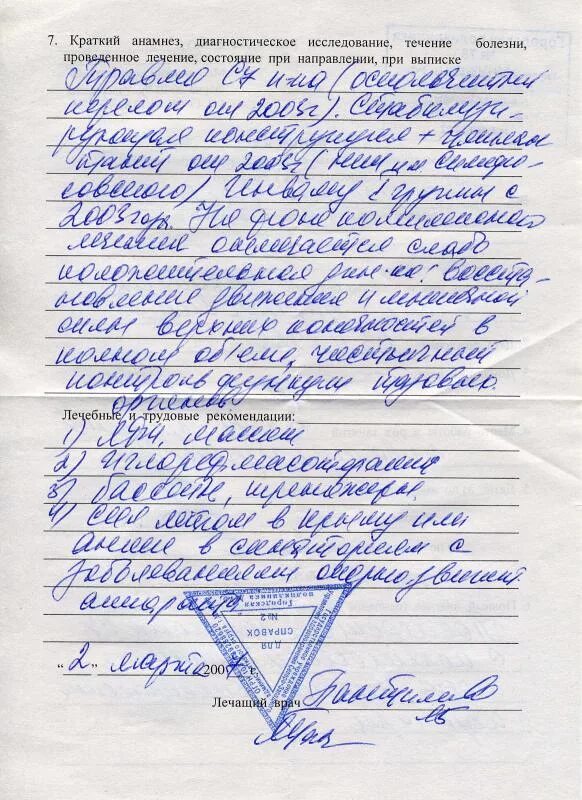 7. Краткий анамнез, диагностическое исследование, течение болезни,
проведенное лечение, состояние при направлении, при выписке
Травма С7 п-ка (оскольчатый
перелом от 2003г). Стабилизи-
рующая конструкция +
от 2003г (НИИ им Склифо-
совского) Инвалид I группы с
2003 года. На фоне комплексного
лечения отмечается слабо
положительная дин-ка: Восста-
новление движения и мышечной
силы верхних конечностей в
полном объеме, частичный
контроль функции тазовых
органов
Лечебные и трудовые рекомендации:
1) ЛФК, массаж
2) иглорефлексотерапия
3) бассейн, тренажеры
4) сан летом в Крыму или
Анапе в санаториях с
заболеваниями опорно-двигат.
аппарата
Городская
поликлиника
№2
ДЛЯ
СПРАВОК
“ 2 ” марта 200 г.
Лечащий врач